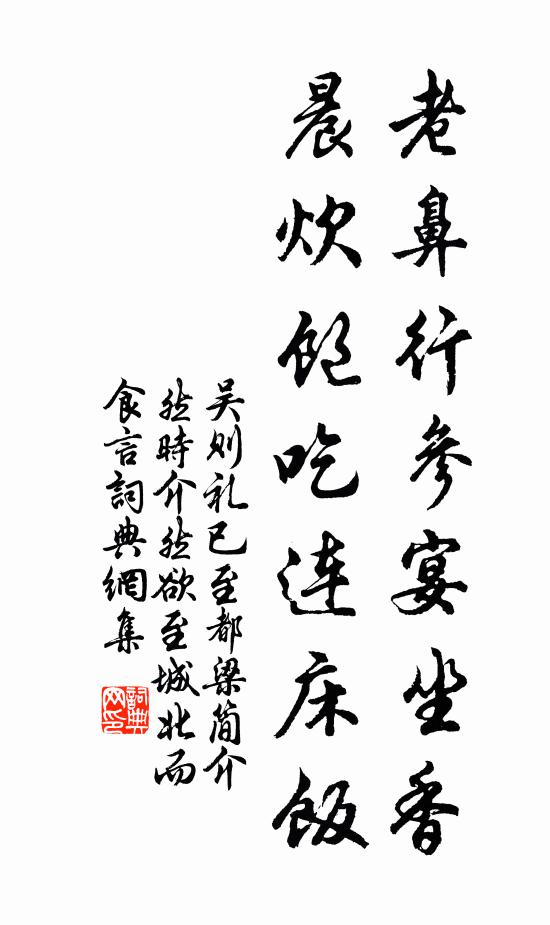 老鼻行參宴坐香
晨炊飽吃连床飯
吴则礼已至都梁简介
然時介然欲至城北而
食言詞典網集
詞典
网印